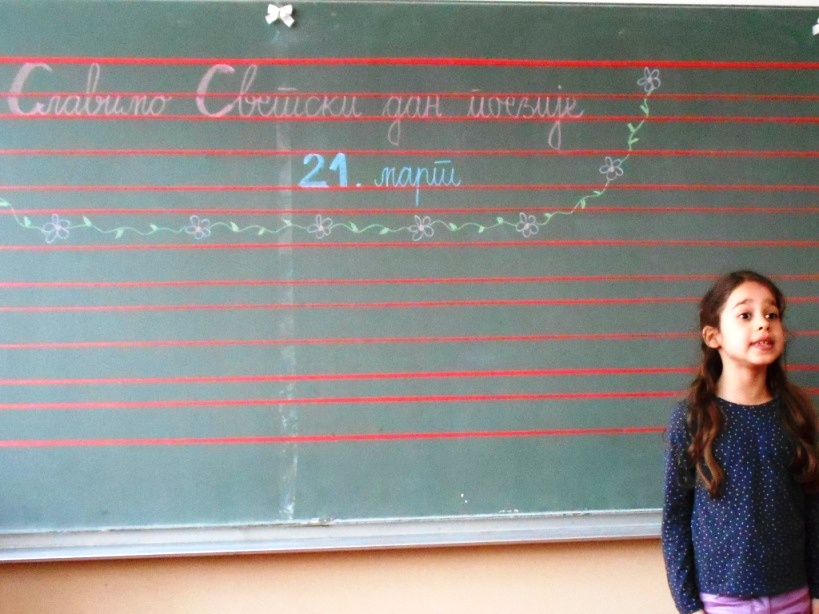 Славимо Светски дан поезије
21. март